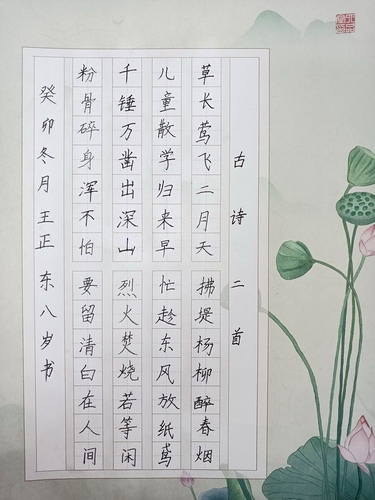 古诗二首
草长莺飞二月天 拂堤杨柳醉春烟
儿童散学归来早 忙趁东风放纸鸢
千锤万凿出深山 烈火焚烧若等闲
粉骨碎身浑不怕 要留清白在人间
癸卯冬月王正东八岁书